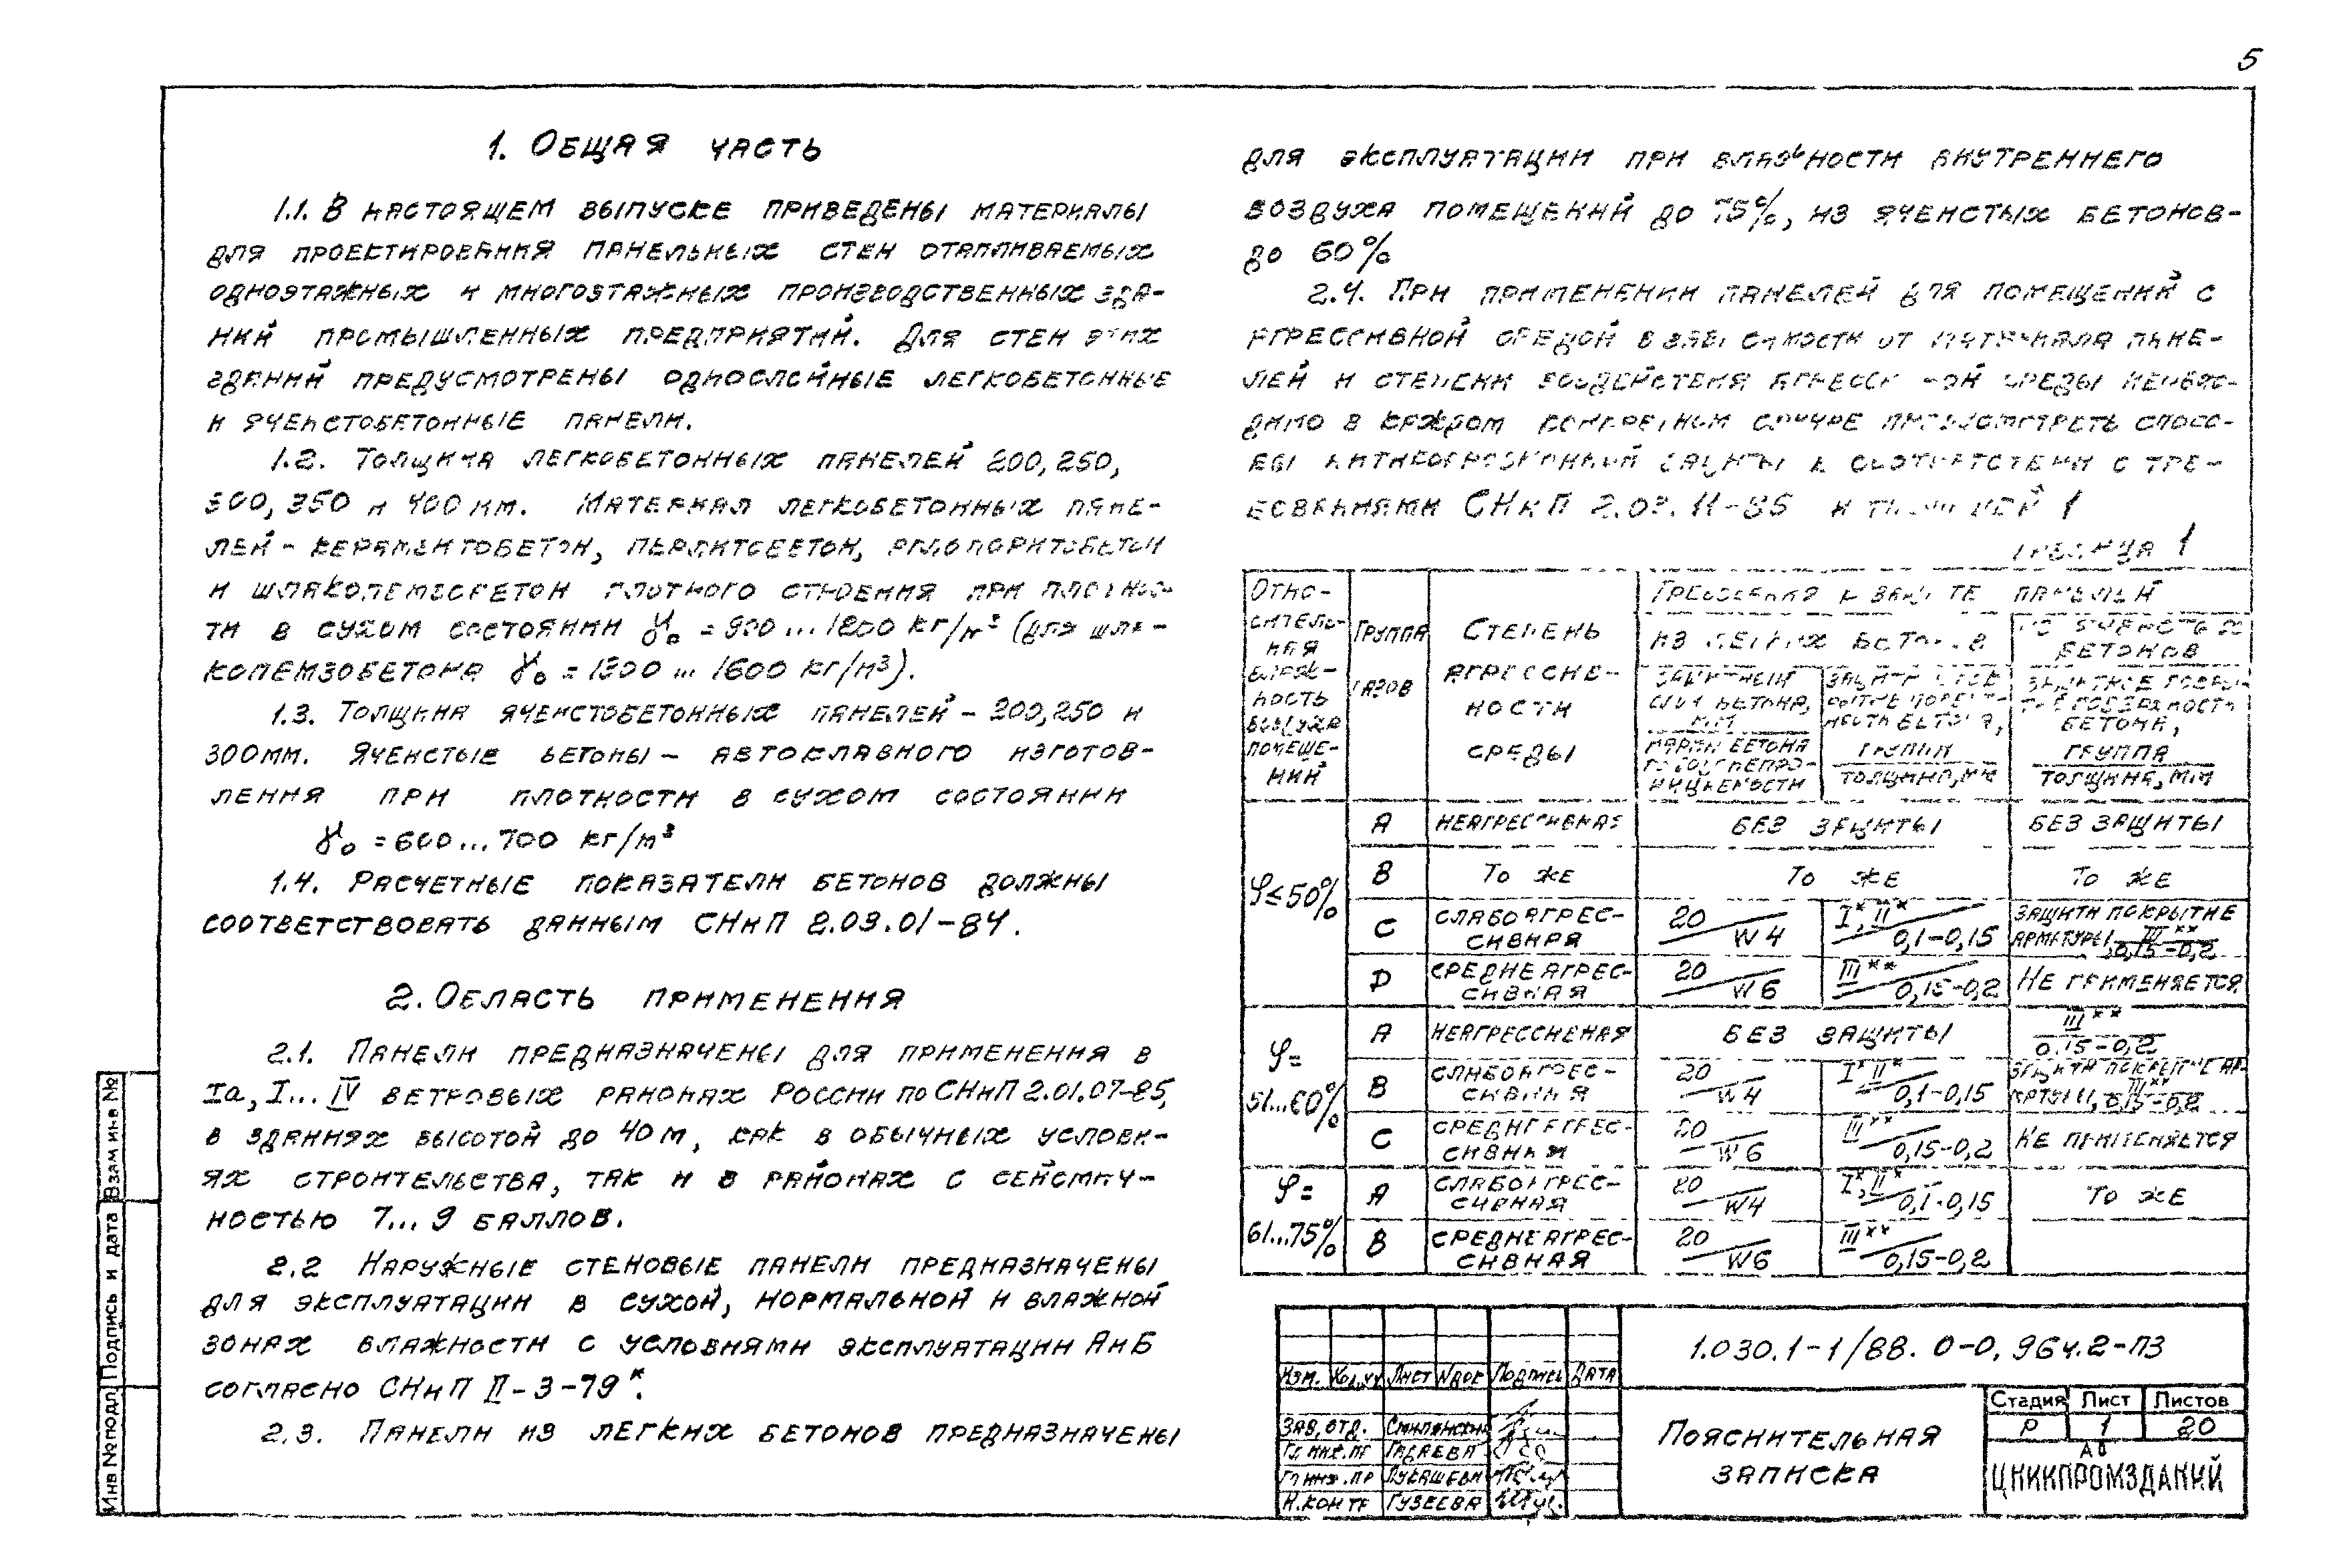 5
1. Общая часть
1.1. В настоящем выпуске приведены материалы
для проектирования панельных стен отапливаемых
одноэтажных и многоэтажных производственных зда-
ний промышленных предприятий. Для стен этих
зданий предусмотрены однослойные легкобетонные
и ячеистобетонные панели.
1.2. Толщина легкобетонных панелей 200, 250,
300, 350 и 400 мм. Материал легкобетонных пане-
лей - керамзитобетон, перлитобетон, аглопоритобетон
и шлакопемзобетон плотного строения при плотнос-
ти в сухом состоянии γ₀ = 900...1800 кг/м³ (для шла-
копемзобетона γ₀ = 1300 ... 1600 кг/м³).
1.3. Толщина ячеистобетонных панелей - 200, 250 и
300мм. Ячеистые бетоны - автоклавного изготов-
ления при плотности в сухом состоянии
γ₀ = 600...700 кг/м³
1.4. Расчетные показатели бетонов должны
соответствовать данным СНиП 2.03.01-84.
2. Область применения
2.1. Панели предназначены для применения в
Iа, I... IV ветровых районах России по СНиП 2.01.07-85,
в зданиях высотой до 40 м, как в обычных услови-
ях строительства, так и в районах с сейсмич-
ностью 7... 9 баллов.
2.2 Наружные стеновые панели предназначены
для эксплуатации в сухой, нормальной и влажной
зонах влажности с условиями эксплуатации А и Б
согласно СНиП II-3-79*.
2.3. Панели из легких бетонов предназначены
для эксплуатации при влажности внутреннего
воздуха помещений до 75%, из ячеистых бетонов-
до 60%
2.4. При применении панелей для помещений с
агрессивной средой в зависимости от материала пане-
лей и степени воздействия агрессивной среды необхо-
димо в каждом конкретном случае предусмотреть спосо-
бы антикоррозионной защиты в соответствии с тре-
бованиями СНиП 2.03.11-85 и таблицей 1
Таблица 1
Относительная влажность воздуха помещений
Группа газов
Степень агрессивности среды
Требования к защите панелей
из легких бетонов
из ячеистых бетонов
бетона, мм
марка бетона по водонепроницаемости
группа
толщина, мм
бетона,
группа
толщина, мм
φ≤50% А неагрессивная без защиты без защиты
В То же То же То же
С слабоагрессивная 20/W4 I*, II*/0,1-0,15 защитн покрытие арматуры, III**/0,15-0,2
D среднеагрессивная 20/W6 III**/0,15-0,2 Не применяется
φ= 51...60% А неагрессивная без защиты III**/0,15-0,2
В слабоагрессивная 20/W4 I* II*/0,1-0,15 защитн покрытие арматуры, III**/0,15-0,2
С среднеагрессивная 20/W6 III**/0,15-0,2 Не применяется
φ= 61...75% А слабоагрессивная 20/W4 I*, II*/0,1-0,15 То же
В среднеагрессивная 20/W6 III**/0,15-0,2
1.030.1-1/88. 0-0, 96ч.2-ПЗ
Изм. Кол.уч Лист №док Подпись Дата
Зав. отд.
Гл инж. пр
Гл инж. пр Лукашевич
Н. контр Гузеева
Пояснительная
записка
Стадия Лист Листов
Р 1 20
АО
ЦНИИПРОМЗДАНИЙ
Взам инв №
Подпись и дата
Инв № подл